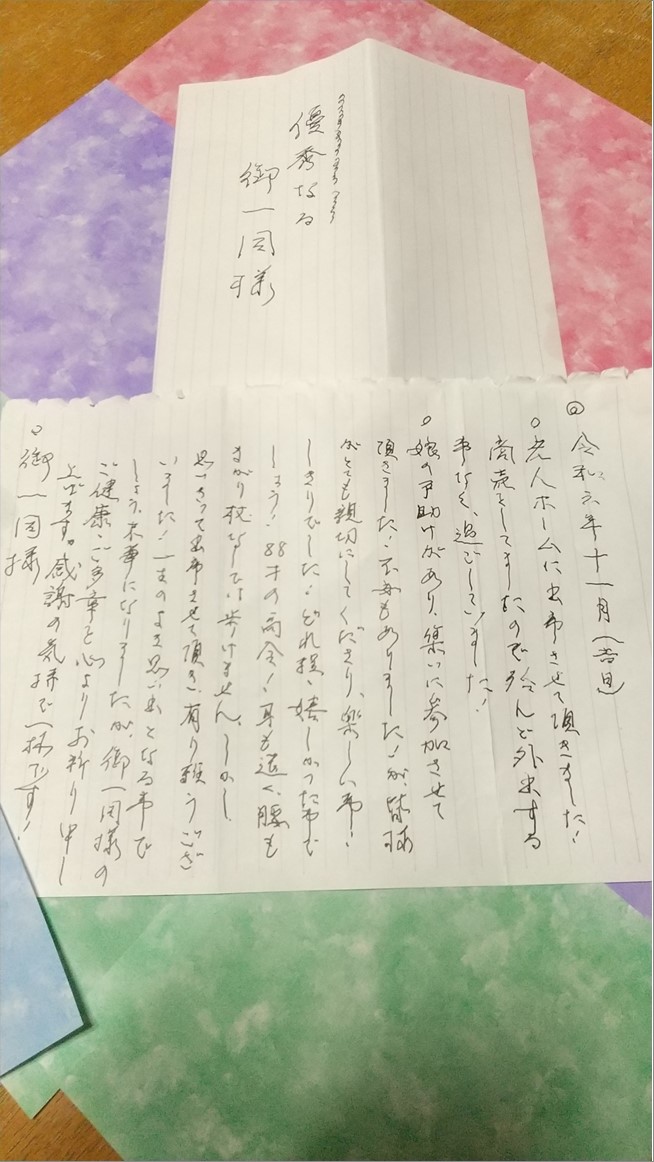 優秀なる
御一同様
令和六年十一月(吉日)
老人ホームに出席させて頂きました!
商売をしてましたので殆んど外出する
事なく、過ごしていました!
娘の手助けがあり、集いに参加させて
頂きました!不安もありました!が、皆様
がとても親切にしてくださり、楽しい事!
しきりでした!どれ程、嬉しかった事で
しょう!88才の高令!耳も遠く、腰も
まがり杖なしでは歩けません。しかし
思いきって出席させて頂き、有り難うござ
いました!一生のよき思い出となる事で
しょう、末筆になりましたが、御一同様の
ご健康、ご多幸を心よりお祈り申し
上げます。感謝の気持で一杯です!
御一同様